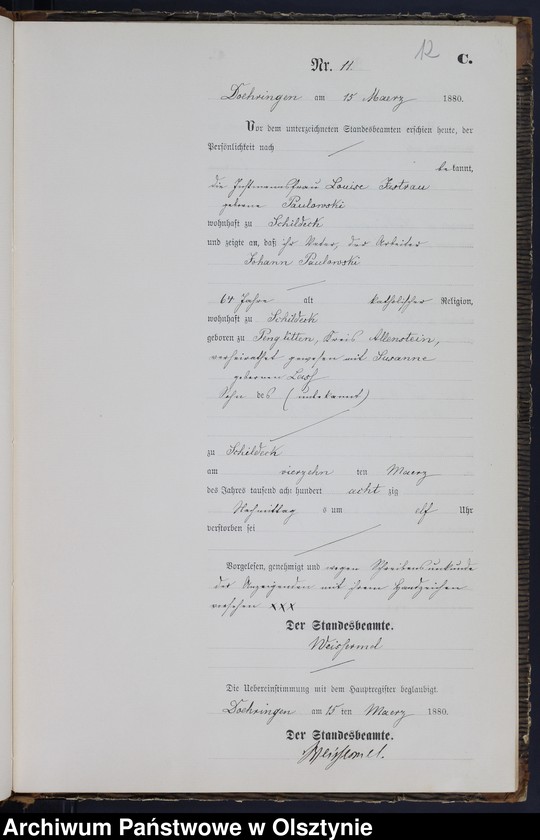 12
C.
Nr. 11.
Doehringen am 15 Maerz 1880.
Vor dem unterzeichneten Standesbeamten erschien heute, der
Persönlichkeit nach
be kannt,
die Instmannsfrau Louise
geborne Paulowski
wohnhaft zu Schildeck
und zeigte an, daß ihr Vater, der Arbeiter
Johann Paulowski
64 Jahre alt katholischer Religion,
wohnhaft zu Schildeck
geboren zu Penglitten, Kreis Allenstein,
verheirathet gewesen mit Susanne
gebornen
Sohn des (unbekannt)
zu Schildeck
am vierzehn ten Maerz
des Jahres tausend acht hundert acht zig
Nachmittag s um elf Uhr
verstorben sei
Vorgelesen, genehmigt und wegen Schreibensunkunde
der Anzeigenden mit ihrem Handzeichen
versehen XXX
Der Standesbeamte.
Weissermel
Die Uebereinstimmung mit dem Hauptregister beglaubigt.
Doehringen am 15 ten Maerz 1880.
Der Standesbeamte.
Weissermel.
Archiwum Państwowe w Olsztynie